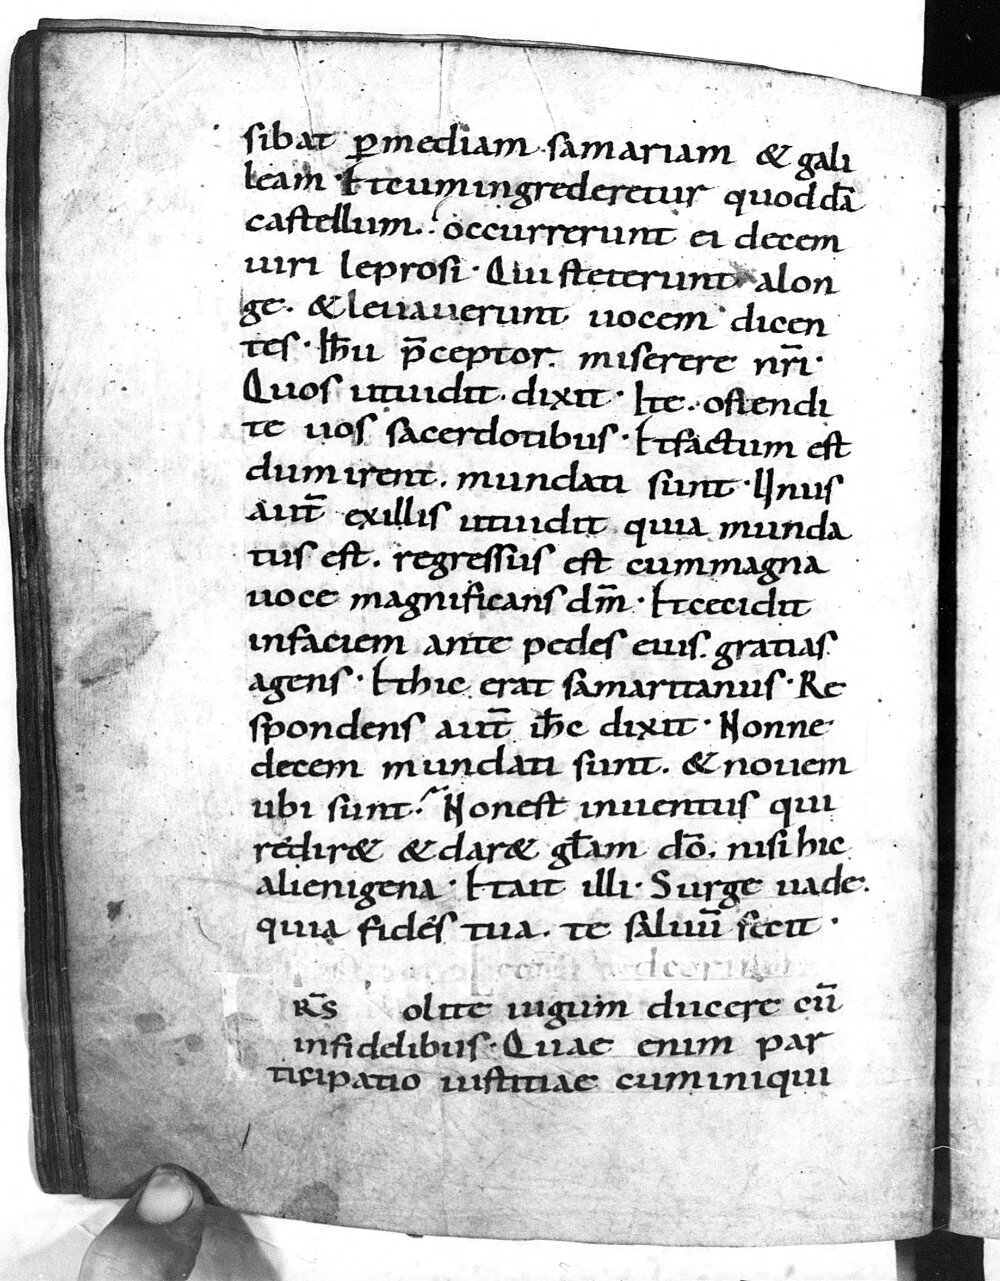 sibat ꝑmediam samariam & gali
leam · Etcumingrederetur quoddā
castellum. occurrerunt ei decem
uiri leprosi · Qui steterunt alon
ge. & leuauerunt uocem dicen
tes · Ihū p̄ceptor. miserere nr̄i ·
Quos utuidit. dixit · Ite. ostendi
te uos sacerdotibus · Etfactum est
dum irent. mundati sunt · Unus
aut̄ exillis utuidit quia munda
tus est. regressus est cummagna
uoce magnificans dm̄ · Etcecidit
infaciem ante pedes eius. gratias
agens · Ethic erat samaritanus · Re
spondens aut̄ ih̄c dixit · Nonne
decem mundati sunt. & nouem
ubi sunt? Nonest inuentus qui
redir& & dar& gl̄am dō. nisi hic
alienigena · Etait illi · Surge uade.
quia fides tua. te saluū fecit ·
R̄S olite iugum ducere cū
infidelibus · Quae enim par
ticipatio iustitiae cuminiqui